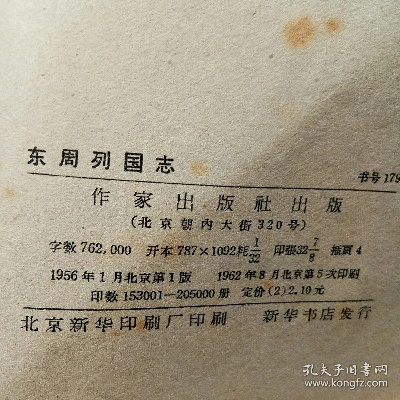 东周列国志
书号179
作家出版社出版
(北京朝内大街320号)
字数762,000 开本787×1092耗1/32 印張32 7/8 插頁4
1956年1月北京第1版 1962年8月北京第5次印刷
印数153001—205000册 定价(2)2.10元
北京新华印刷厂印刷 新华书店发行
孔夫子旧书网
www.kongfz.com